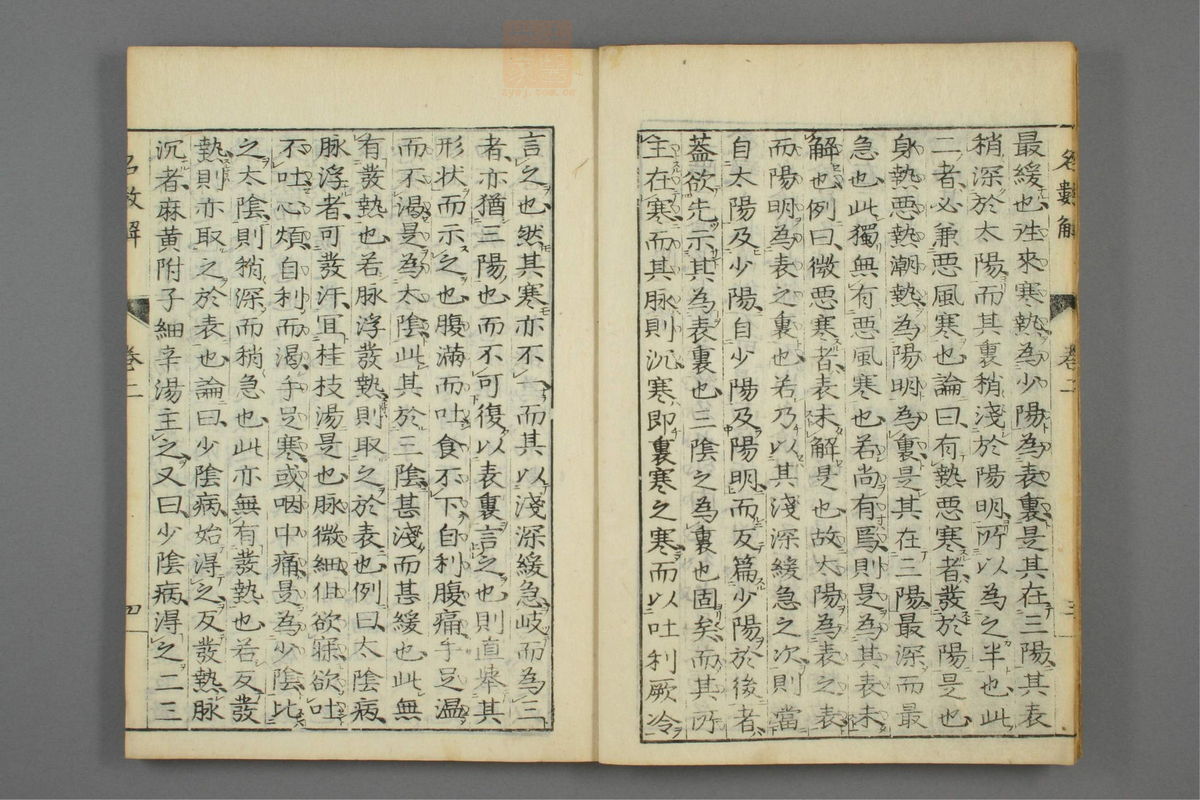 最緩也往來寒熱為少陽為表裏是其在三陽其表
稍深於太陽而其裏稍淺於陽明所以為之半也此
二者必兼惡風寒也論曰有熱惡寒者發於陽是也
身熱惡熱潮熱為陽明為裏是其在三陽最深而最
急也此獨無有惡風寒也若尚有焉則是為其表未
解也例曰微惡寒者表未解是也故太陽為表之表
而陽明為表之裏也若乃以其淺深緩急之次則當
自太陽及少陽自少陽及陽明而反篇少陽於後者
蓋欲先示其為表裏也三陰之為裏也固矣而其所
主在寒而其脉則沉寒即裏寒之寒而以吐利厥冷
卷二
言之也然其寒亦不一而其以淺深緩急岐而為三
者亦猶三陽也而不可復以表裏言之也則直舉其
形状而示之也腹滿而吐食不下自利腹痛手足溫
而不渴是為太陰此其於三陰甚淺而甚緩也此無
有發熱也若脉浮發熱則取之於表也例曰太陰病
脉浮者可發汗冝桂枝湯是也脉微細但欲寐欲吐
不吐心煩自利而渴手足寒或咽中痛是為少陰比
之太陰則稍深而稍急也此亦無有發熱也若反發
熱則亦取之於表也論曰少陰病始得之反發熱脉
沉者麻黄附子細辛湯主之又曰少陰病得之二三
卷二
四